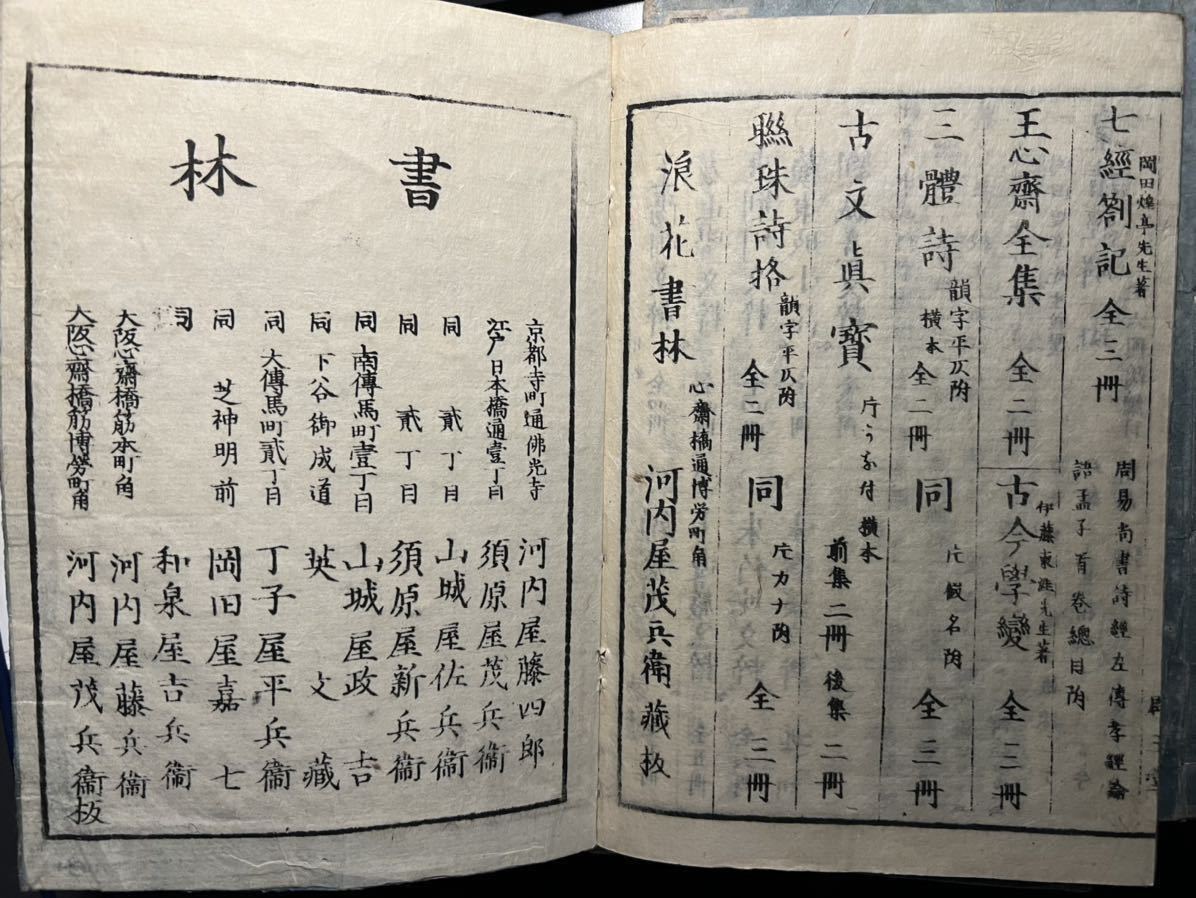 岡田煌亭先生著
七經劄記 全三冊
周易尚書詩經左傳孝經論
語孟子有卷總目附
王心齋全集 全二冊
伊藤東涯先生著
古今學變 全三冊
三體詩 韻字平仄附 横本 全二冊
同 片假名附 全三冊
古文眞寶 片うな付 横本 前集二冊 後集二冊
聯珠詩格 韻字平仄附 全二冊
同 片カナ附 全三冊
浪花書林 心齋橋通博労町角 河内屋茂兵衛藏板
書林
京都寺町通佛光寺 河内屋藤四郎
江戸日本橋通壹丁目 須原屋茂兵衞
同 貳丁目 山城屋佐兵衞
同 貳丁目 須原屋新兵衞
同 南傳馬町壹丁目 山城屋政吉
同 下谷御成道 英文藏
同 大傳馬町貳丁目 丁子屋平兵衞
同 芝神明前 岡田屋嘉七
同 和泉屋吉兵衞
大阪心齋橋筋本町角 河内屋藤兵衞
大阪心齋橋筋博勞町角 河内屋茂兵衞板